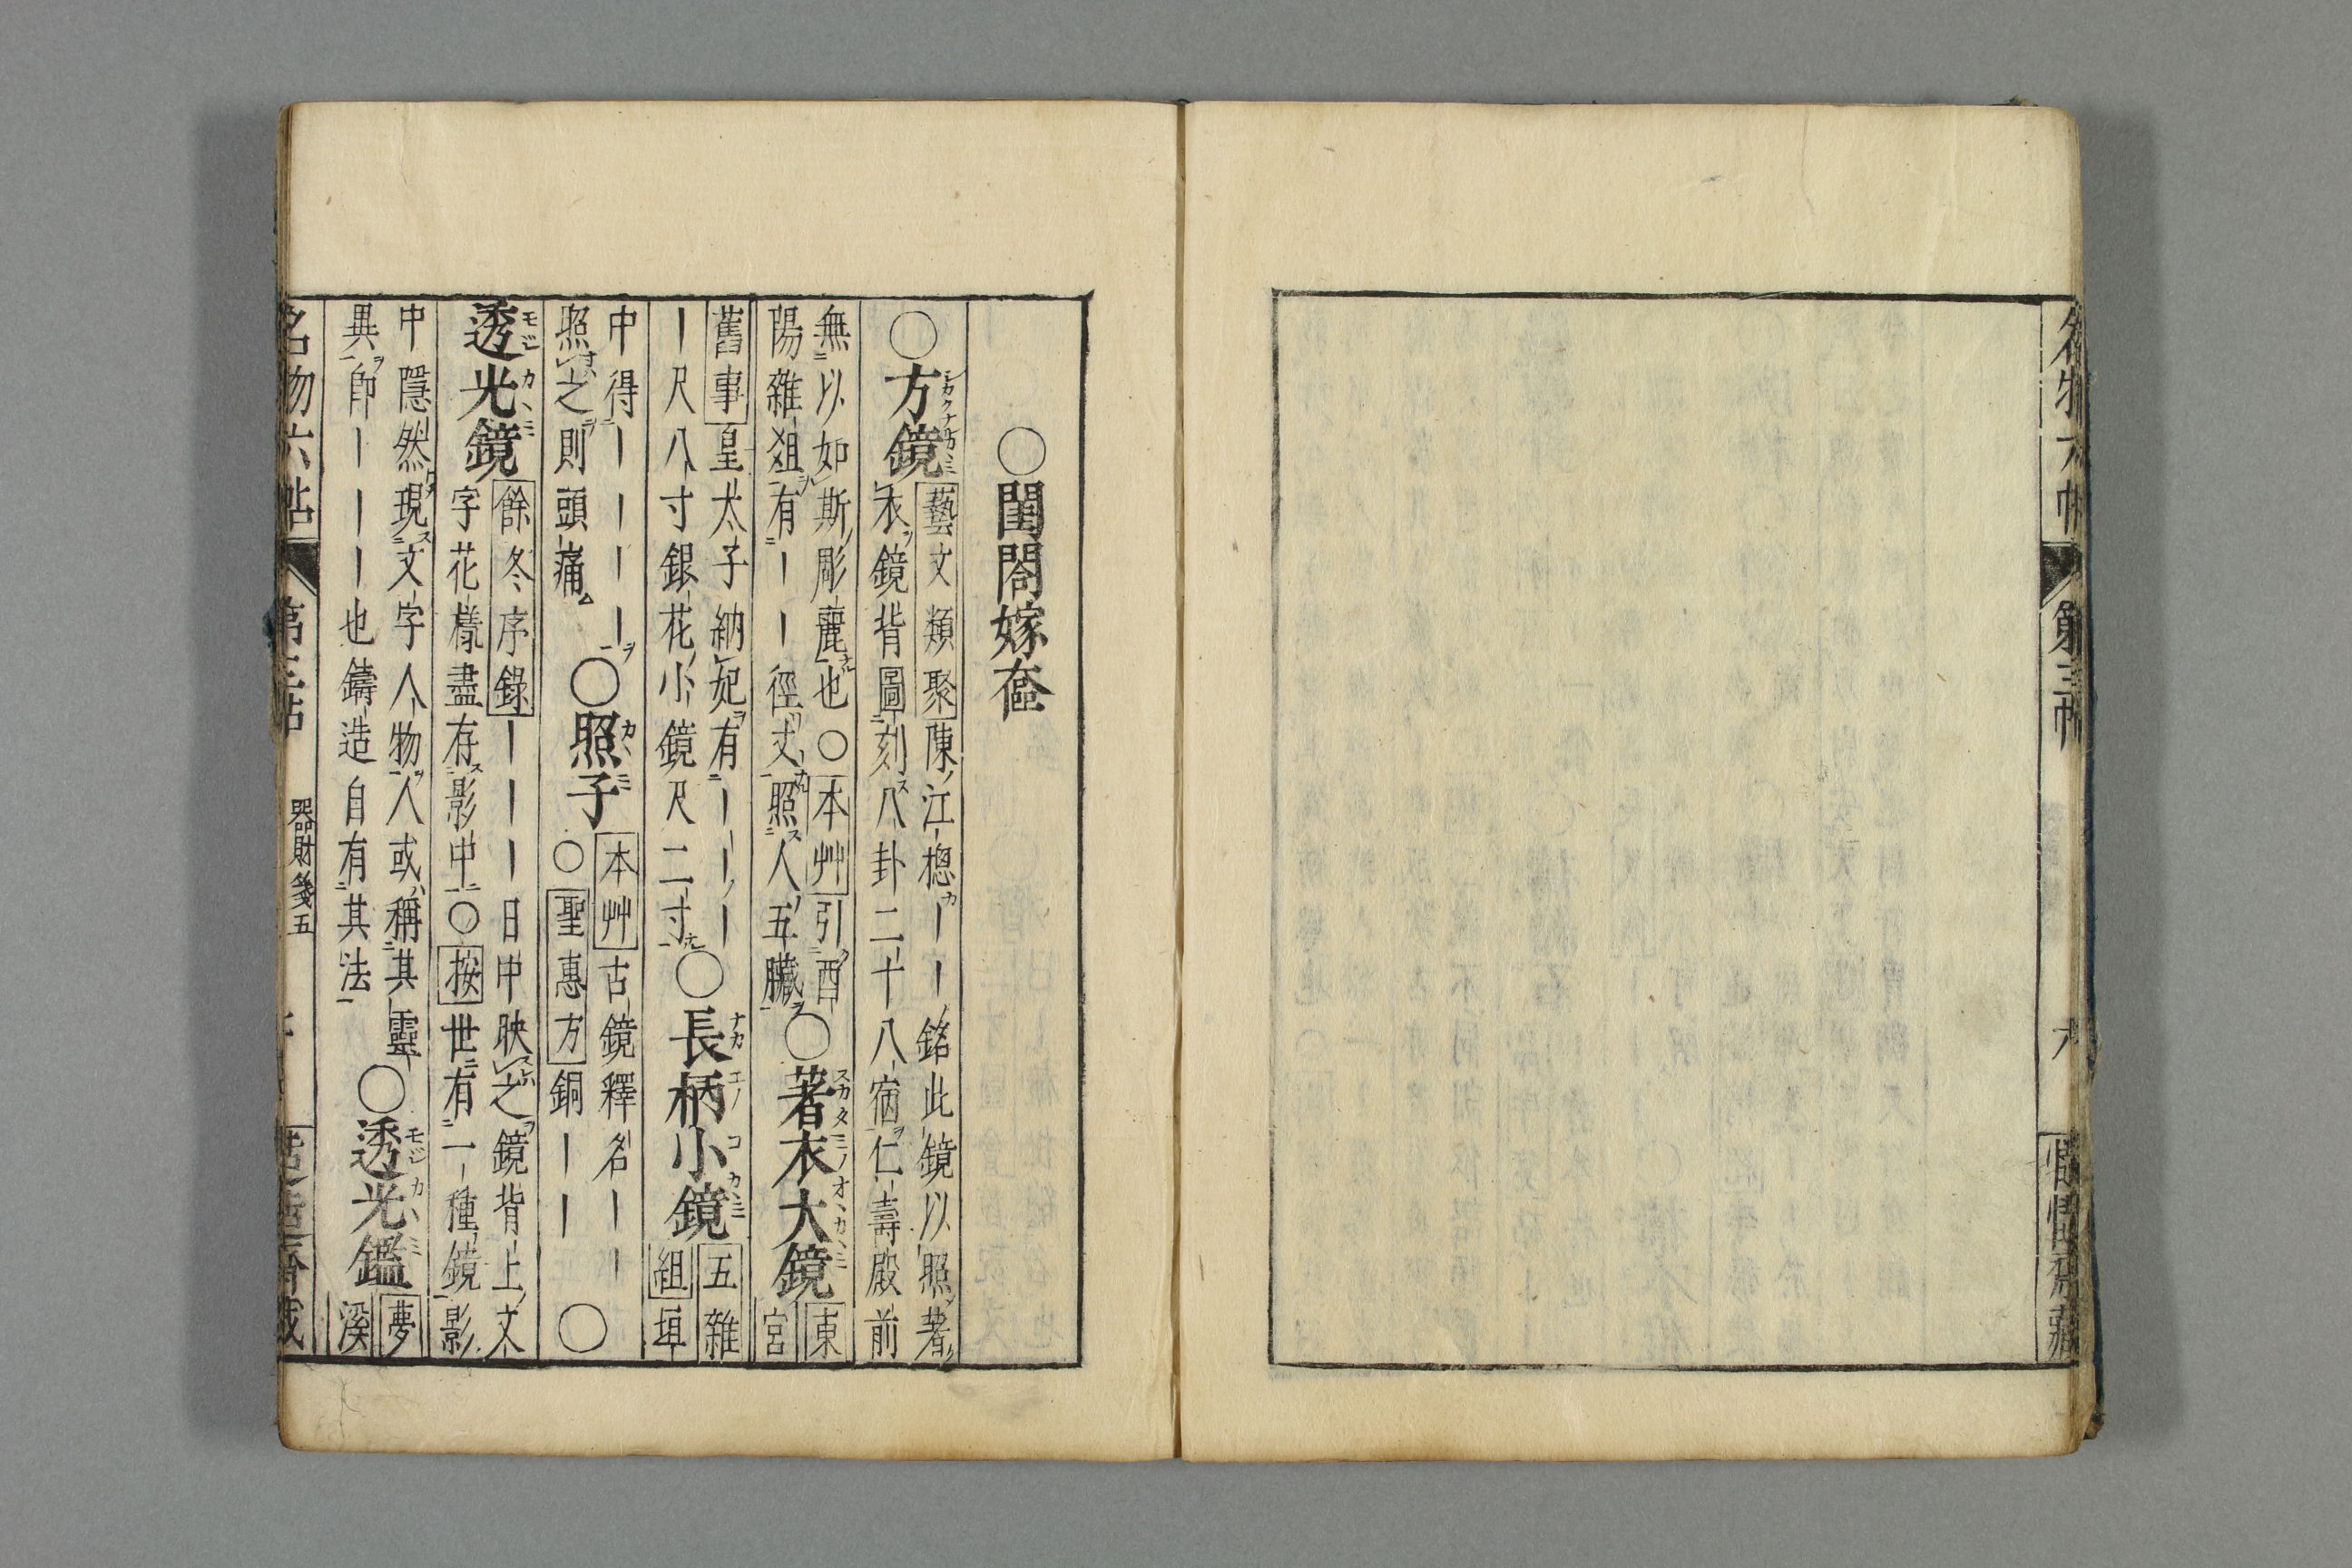 名物六帖 第三帖
○閨閤嫁奩
○方鏡 藝文類聚陳江總｜｜銘此鏡以照著
衣鏡背圖刻八卦二十八宿仁壽殿前
無以如斯彫麗也○本艸引酉
陽雜俎有｜｜徑丈照人五臟○著衣大鏡 東
宮
舊事皇太子納妃有｜｜｜｜
｜尺八寸銀花小鏡尺二寸○長柄小鏡 五雜
組垣
中得｜｜｜｜
照之則頭痛○照子 本艸古鏡釋名｜｜
○聖惠方銅｜｜○
透光鏡 餘冬序錄｜｜｜日中映之鏡背上文
字花樣盡存影中○按世有一種鏡影
中隱然現文字人物人或稱其靈
異卽｜｜｜也鑄造自有其法○透光鑑 夢
溪
名物六帖 第三帖 器財箋五